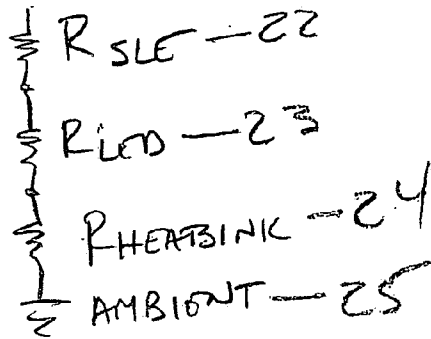 RSLE — 22
RLED — 23
RHEATSINK — 24
AMBIENT — 25